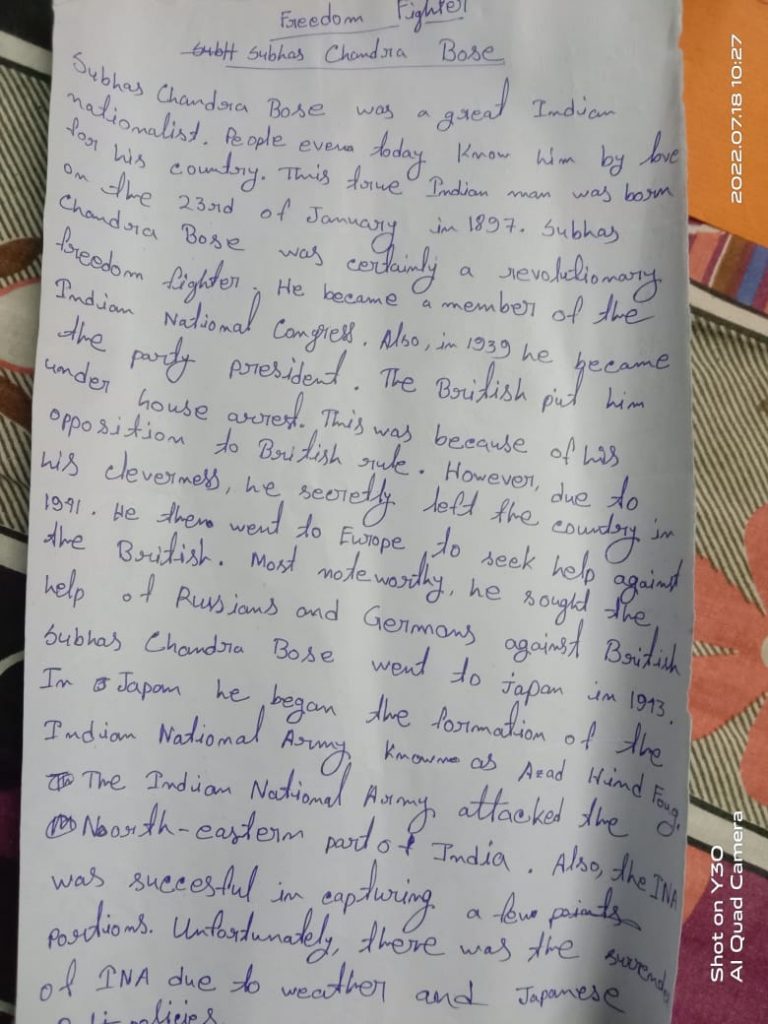 Freedom Fighter
Subhas Chandra Bose
Subhas Chandra Bose was a great Indian
nationalist. People even today know him by love
for his country. This true Indian man was born
on the 23rd of January in 1897. Subhas
Chandra Bose was certainly a revolutionary
freedom fighter. He became a member of the
Indian National Congress. Also, in 1939 he became
the party president. The British put him
under house arrest. This was because of his
opposition to British rule. However, due to
his cleverness, he secretly left the country in
1941. He then went to Europe to seek help against
the British. Most noteworthy, he sought the
help of Russians and Germans against British
Subhas Chandra Bose went to japan in 1943.
In Japan he began the formation of the
Indian National Army known as Azad Hind Foug.
The Indian National Army attacked the
North-eastern part of India. Also, the INA
was succesful in capturing a few
portions. Unfortunately, there was the surrender
of INA due to weather and Japanese
policies.
2022.07.18 10:27
Shot on Y30
AI Quad Camera